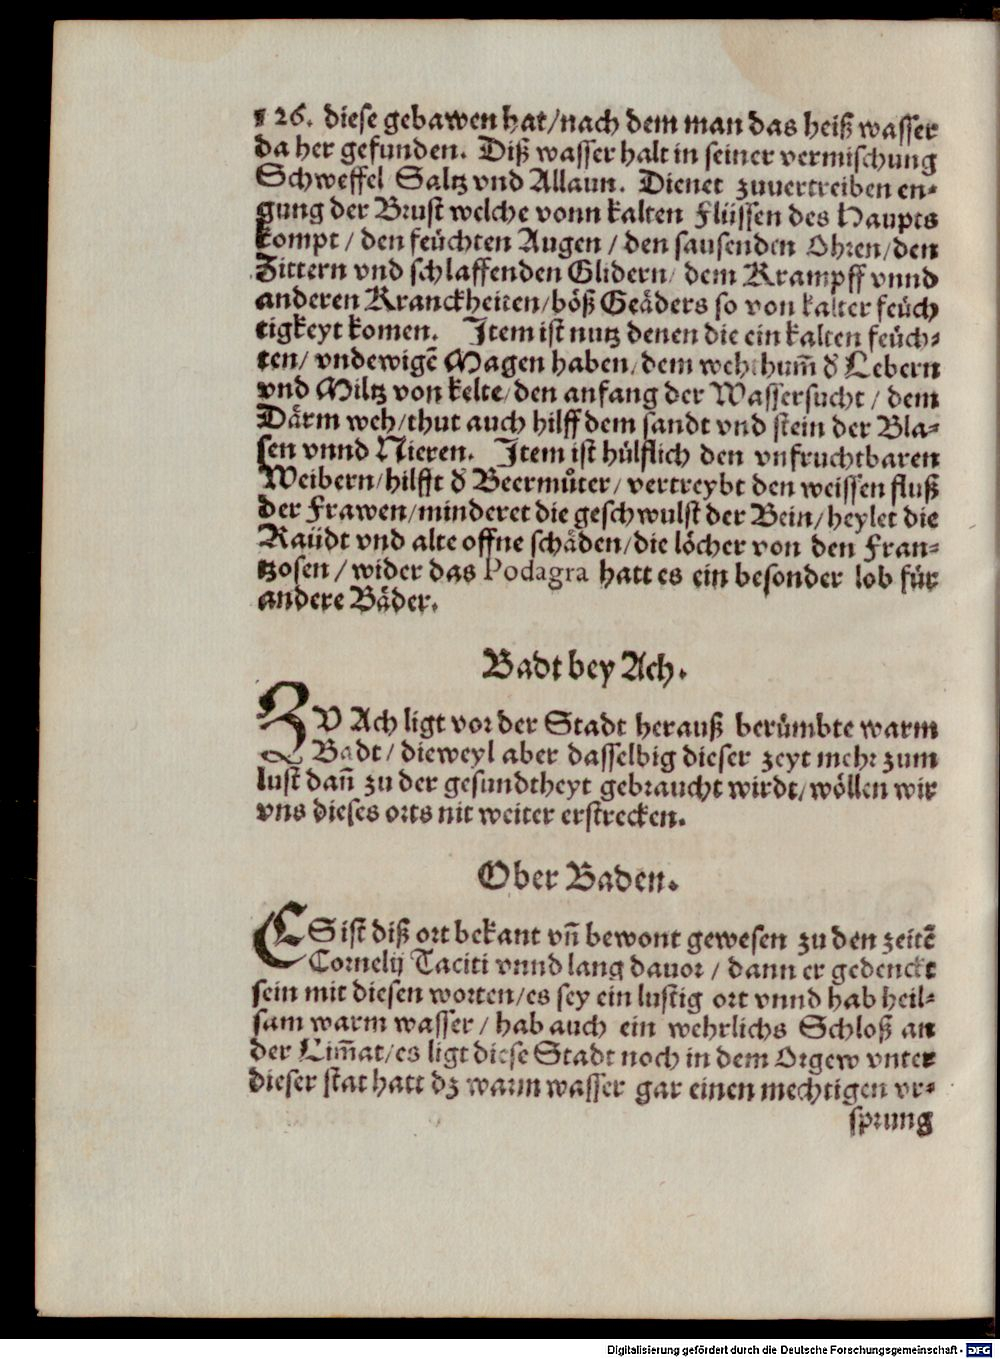 126. diese gebawen hat/nach dem man das heiß wasser
da her gefunden. Diß wasser halt in seiner vermischung
Schweffel Saltz vnd Allaun. Dienet zuuertreiben en-
gung der Brust welche vonn kalten Flüssen des Haupts
kompt / den feüchten Augen / den sausenden Ohren/den
Zittern vnd schlaffenden Glidern/ dem Krampff vnnd
anderen Kranckheiten/böß Geäders so von kalter feüch
tigkeyt komen. Item ist nutz denen die ein kalten feüch-
ten/ vndewigẽ Magen haben/dem wehthum̃ d̕ Lebern
vnd Miltz von kelte/den anfang der Wassersucht / dem
Därm weh/thut auch hilff dem sandt vnd stein der Bla-
sen vnnd Nieren. Item ist hülflich den vnfruchtbaren
Weibern/hilfft d̕ Beermůter/ vertreybt den weissen fluß
der Frawen/minderet die geschwulst der Bein/heylet die
Raüdt vnd alte offne schäden/die löcher von den Fran-
tzosen / wider das Podagra hatt es ein besonder lob für
andere Bäder.
Badt bey Ach.
ZV Ach ligt vor der Stadt herauß berümbte warm
Badt / dieweyl aber dasselbig dieser zeyt mehr zum
lust dañ zu der gesundtheyt gebraucht wirdt/wöllen wir
vns dieses orts nit weiter erstrecken.
Ober Baden.
ES ist diß ort bekant vñ bewont gewesen zu den zeitẽ
Cornelij Taciti vnnd lang dauor / dann er gedenckt
sein mit diesen worten/es sey ein lustig ort vnnd hab heil-
sam warm wasser / hab auch ein wehrlichs Schloß an
der Lim̃at/es ligt diese Stadt noch in dem Orgew vnter
dieser stat hatt dz warm wasser gar einen mechtigen vr-
sprung
Digitalisierung gefördert durch die Deutsche Forschungsgemeinschaft - DFG